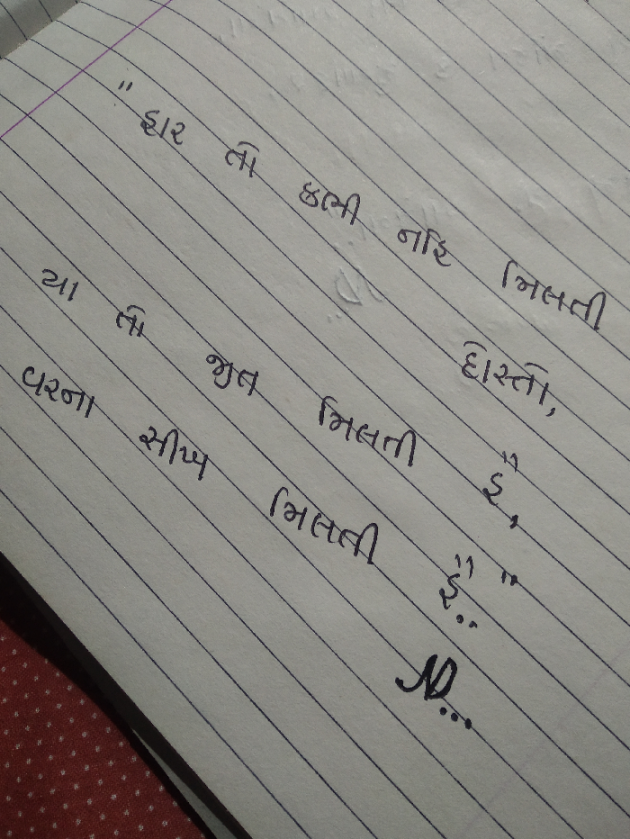 "હાર તો કભી નહિ મિલતી
દોસ્તો,
યા તો જીત મિલતી હૈ,
વરના સીખ મિલતી હૈ.."
ND...